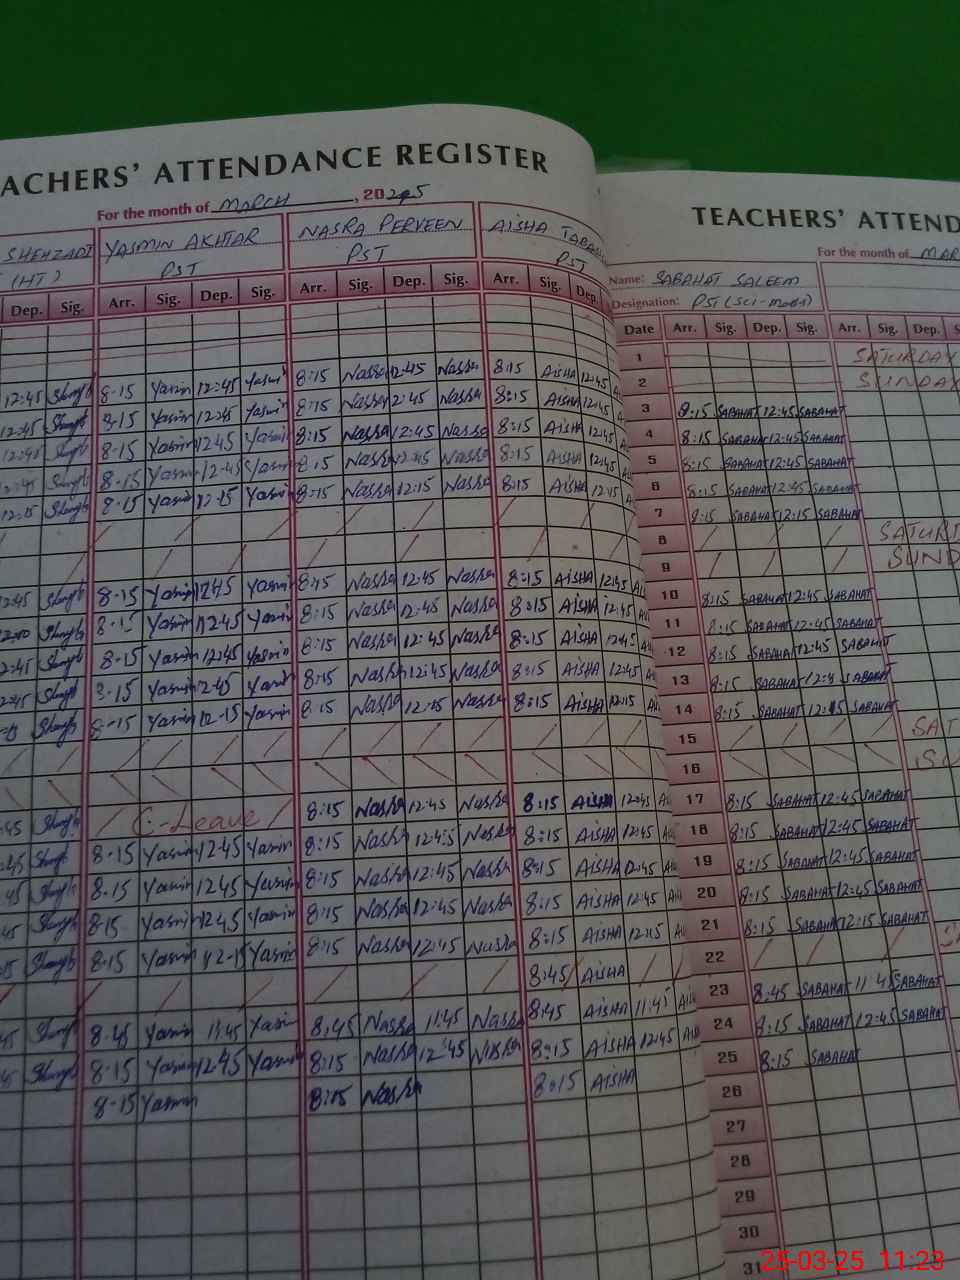 TEACHERS' ATTENDANCE REGISTER
For the month of MARCH, 2025
SHEHZADI YASMIN AKHTAR NASRA PERVEEN AISHA
(HT) PST PST PST
Dep. Sig. Arr. Sig. Dep. Sig. Arr. Sig. Dep. Sig. Arr. Sig. Dep.
12:45 8-15 Yasmin 12:45 Yasmin 8:15 Nasra 12:45 Nasra 8:15 AISHA 12:45
12:45 8-15 Yasmin 12:45 Yasmin 8:15 Nasra 12:45 Nasra 8:15 AISHA 12:45
12:45 8-15 Yasmin 12:45 Yasmin 8:15 Nasra 12:45 Nasra 8:15 AISHA 12:45
12:45 8-15 Yasmin 12:45 Yasmin 8:15 Nasra 12:45 Nasra 8:15 AISHA 12:45
12:15 8-15 Yasmin 12-15 Yasmin 8:15 Nasra 12:15 Nasra 8:15 AISHA 12:15
12:45 8-15 Yasmin 12:45 Yasmin 8:15 Nasra 12:45 Nasra 8:15 AISHA 12:45
8-15 Yasmin 12:45 Yasmin 8:15 Nasra 12:45 Nasra 8:15 AISHA 12:45
12:45 8-15 Yasmin 12:45 Yasmin 8:15 Nasra 12:45 Nasra 8:15 AISHA 12:45
12:45 8-15 Yasmin 12:45 Yasmin 8:15 Nasra 12:45 Nasra 8:15 AISHA 12:45
8-15 Yasmin 12-15 Yasmin 8:15 Nasra 12:15 Nasra 8:15 AISHA 12:15
:45 C-Leave 8:15 Nasra 12:45 Nasra 8:15 AISHA 12:45
:45 8-15 Yasmin 12:45 Yasmin 8:15 Nasra 12:45 Nasra 8:15 AISHA 12:45
45 8-15 Yasmin 12:45 Yasmin 8:15 Nasra 12:45 Nasra 8:15 AISHA 12:45
45 8-15 Yasmin 12:45 Yasmin 8:15 Nasra 12:45 Nasra 8:15 AISHA 12:45
15 8-15 Yasmin 12-15 Yasmin 8:15 Nasra 12:45 Nasra 8:15 AISHA 12:15
8:45 AISHA
45 8-45 Yasmin 11:45 Yasmin 8:45 Nasra 11:45 Nasra 8:45 AISHA 11:45
8-15 Yasmin 12:45 Yasmin 8:15 Nasra 12:45 Nasra 8:15 AISHA 12:45
8-15 Yasmin 8:15 Nasra 8:15 AISHA
TEACHERS' ATTEND
For the month of MAR
Name: SABAHAT SALEEM
Designation: PST (Sci-math)
Date Arr. Sig. Dep. Sig. Arr. Sig. Dep.
1 SATURDAY
2 SUNDAY
3 8:15 SABAHAT 12:45 SABAHAT
4 8:15 SABAHAT 12:45 SABAHAT
5 8:15 SABAHAT 12:45 SABAHAT
6 8:15 SABAHAT 12:45 SABAHAT
7 8:15 SABAHAT 12:15 SABAHAT
8 SATURD
9 SUND
10 8:15 SABAHAT 12:45 SABAHAT
11 8:15 SABAHAT 12:45 SABAHAT
12 8:15 SABAHAT 12:45 SABAHAT
13 8:15 SABAHAT SABAHAT
14 8:15 SABAHAT 12:15 SABAHAT
15 SAT
16 SU
17 8:15 SABAHAT 12:45 SABAHAT
18 8:15 SABAHAT 12:45 SABAHAT
19 8:15 SABAHAT 12:45 SABAHAT
20 8:15 SABAHAT 12:45 SABAHAT
21 8:15 SABAHAT 12:15 SABAHAT
22
23 8:45 SABAHAT 11:45 SABAHAT
24 8:15 SABAHAT 12:45 SABAHAT
25 8:15 SABAHAT
26
27
28
29
30
31
25-03-25 11:23